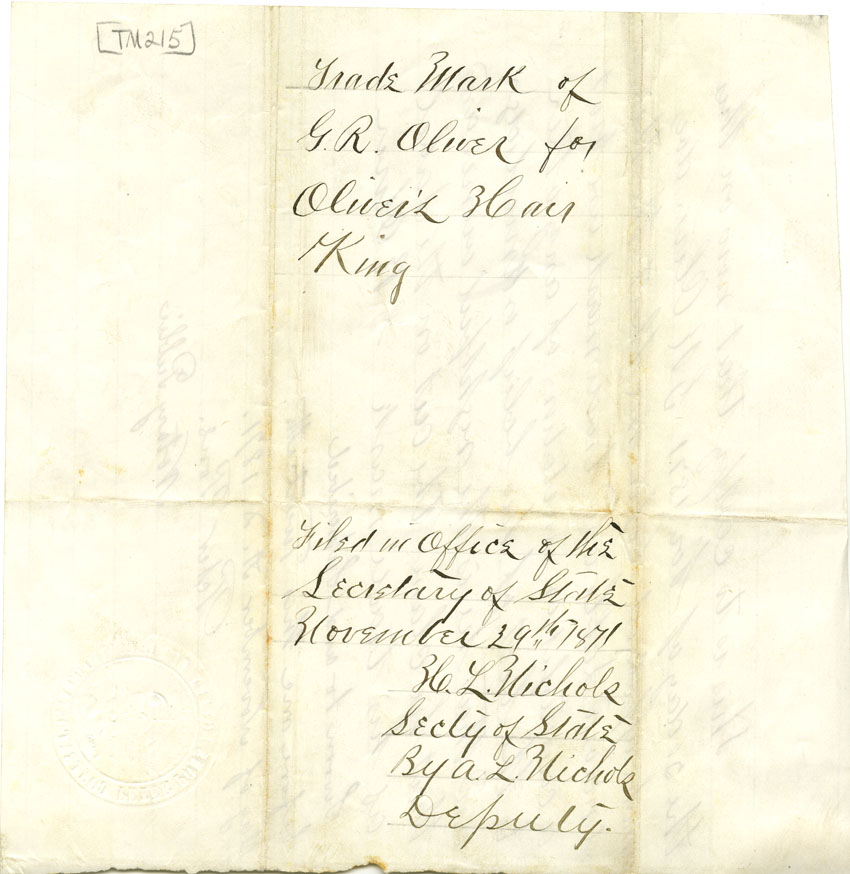 [TM215]
Trade Mark of
G. R. Oliver for
Oliver's Hair
King
Filed in Office of the
Secretary of State
November 29th 1871
H. L. Nichols
Secty of State
By A. L. Nichols
Deputy.